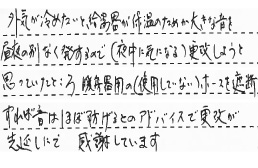 外気が冷めたいと、給湯器が保温のためか大きな音を
昼夜の別なく発するので(夜中に気になる)更改しようと
思っていたところ 暖房器用の(使用していない)ホースを遮断
すれば音はほぼ防げるとのアドバイスで更改が
先延しにでき 感謝しています